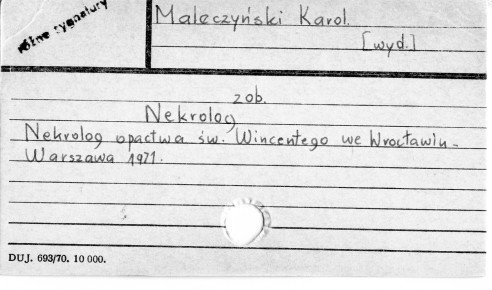 różne sygnatury
Maleczyński Karol.
[wyd.]
zob.
Nekrolog
Nekrolog opactwa św. Wincentego we Wrocławiu.
Warszawa 1971.
DUJ. 693/70. 10 000.